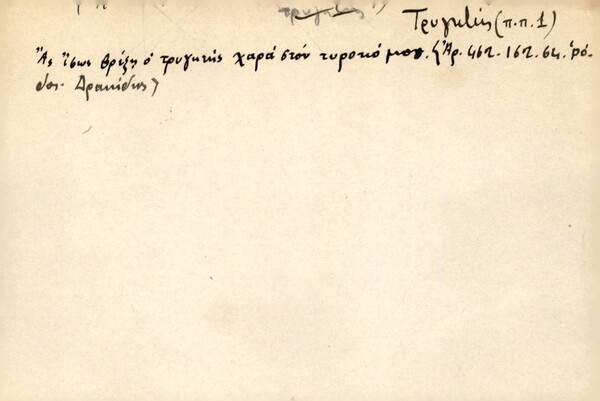 τρυγητής
Τρυγητής (π.π.1)
Ἂς ἴσως βρέξῃ ὁ τρυγητής χαρά στόν τυροκό μου. {Ἀρ. 462. 162. 64. Ῥό-
δος. Δρακίδης}